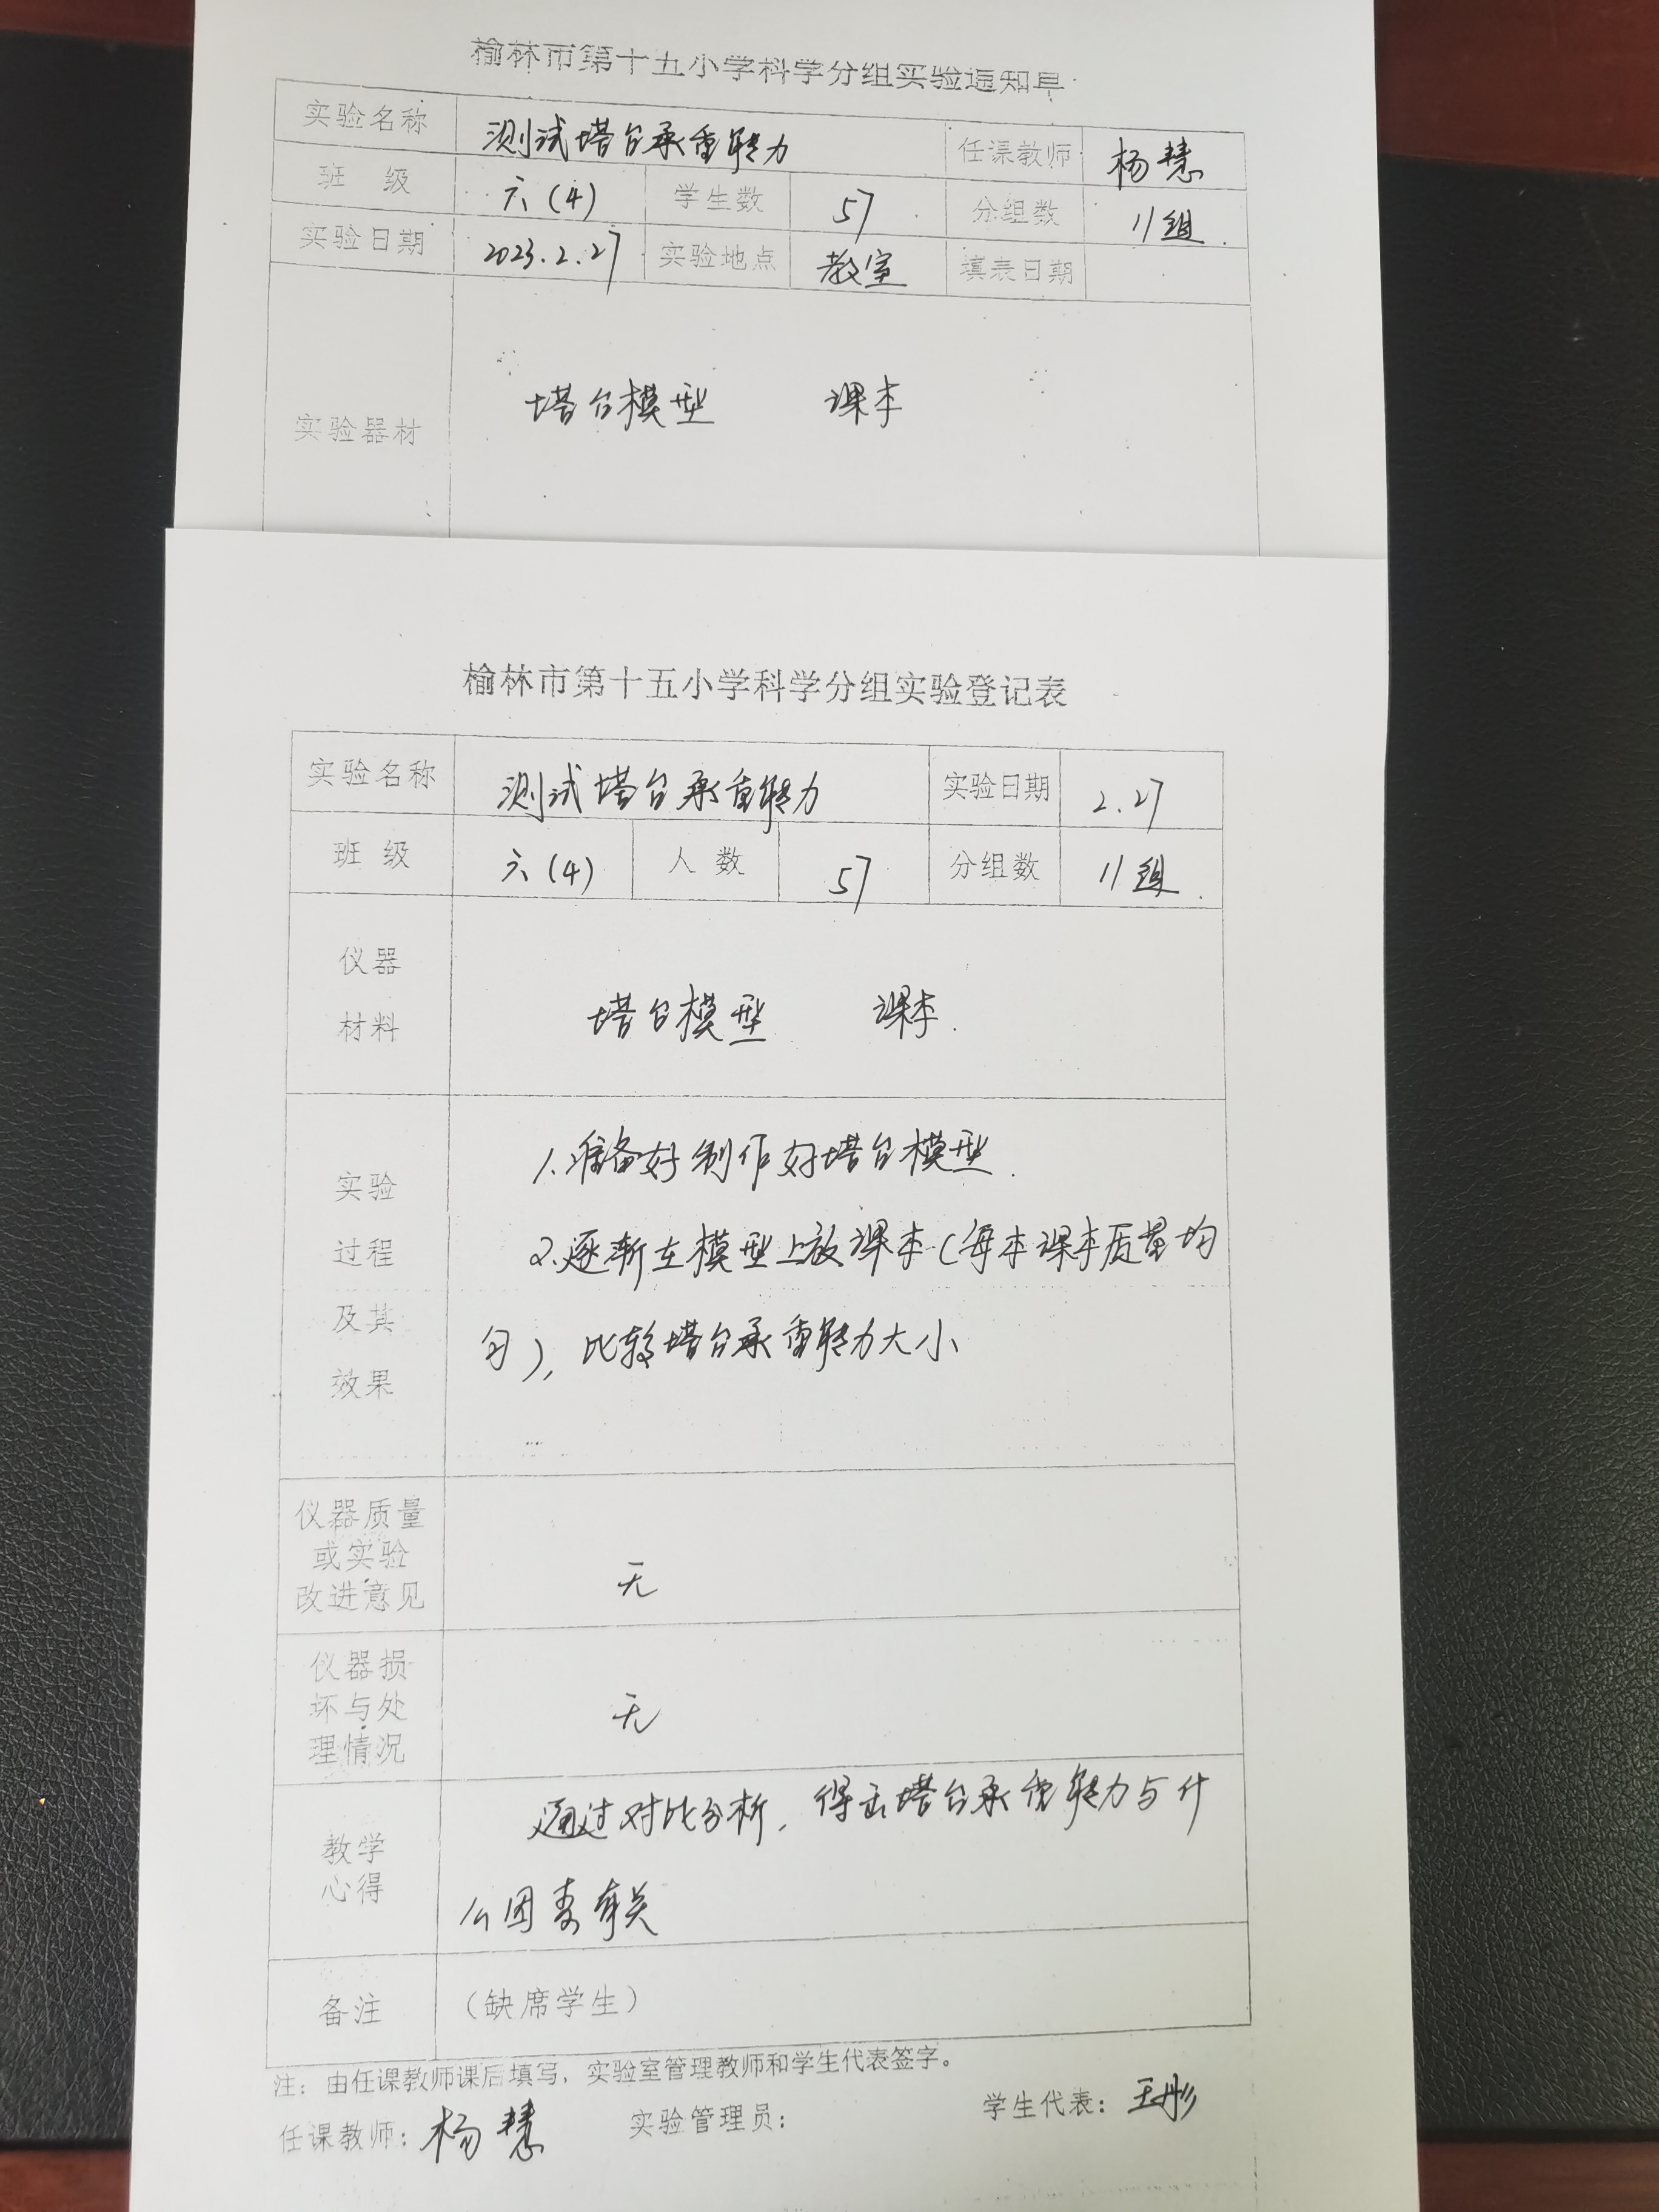 榆林市第十五小学科学分组实验通知单
实验名称 测试塔台承重能力 任课教师 杨慧
班 级 六(4) 学生数 57 分组数 11组
实验日期 2023.2.27 实验地点 教室 填表日期
实验器材 塔台模型 课本
榆林市第十五小学科学分组实验登记表
实验名称 测试塔台承重能力 实验日期 2.27
班 级 六(4) 人 数 57 分组数 11组
仪器
材料
塔台模型 课本.
实验
过程
及其
效果
1.准备好制作好塔台模型.
2.逐渐在模型上放课本(每本课本质量均
匀),比较塔台承重能力大小
仪器质量
或实验
改进意见
无
仪器损
坏与处
理情况
无
教学
心得
通过对比分析,得出塔台承重能力与什
么因素有关
备注 (缺席学生)
注:由任课教师课后填写,实验室管理教师和学生代表签字。
任课教师:杨慧 实验管理员: 学生代表:王彤